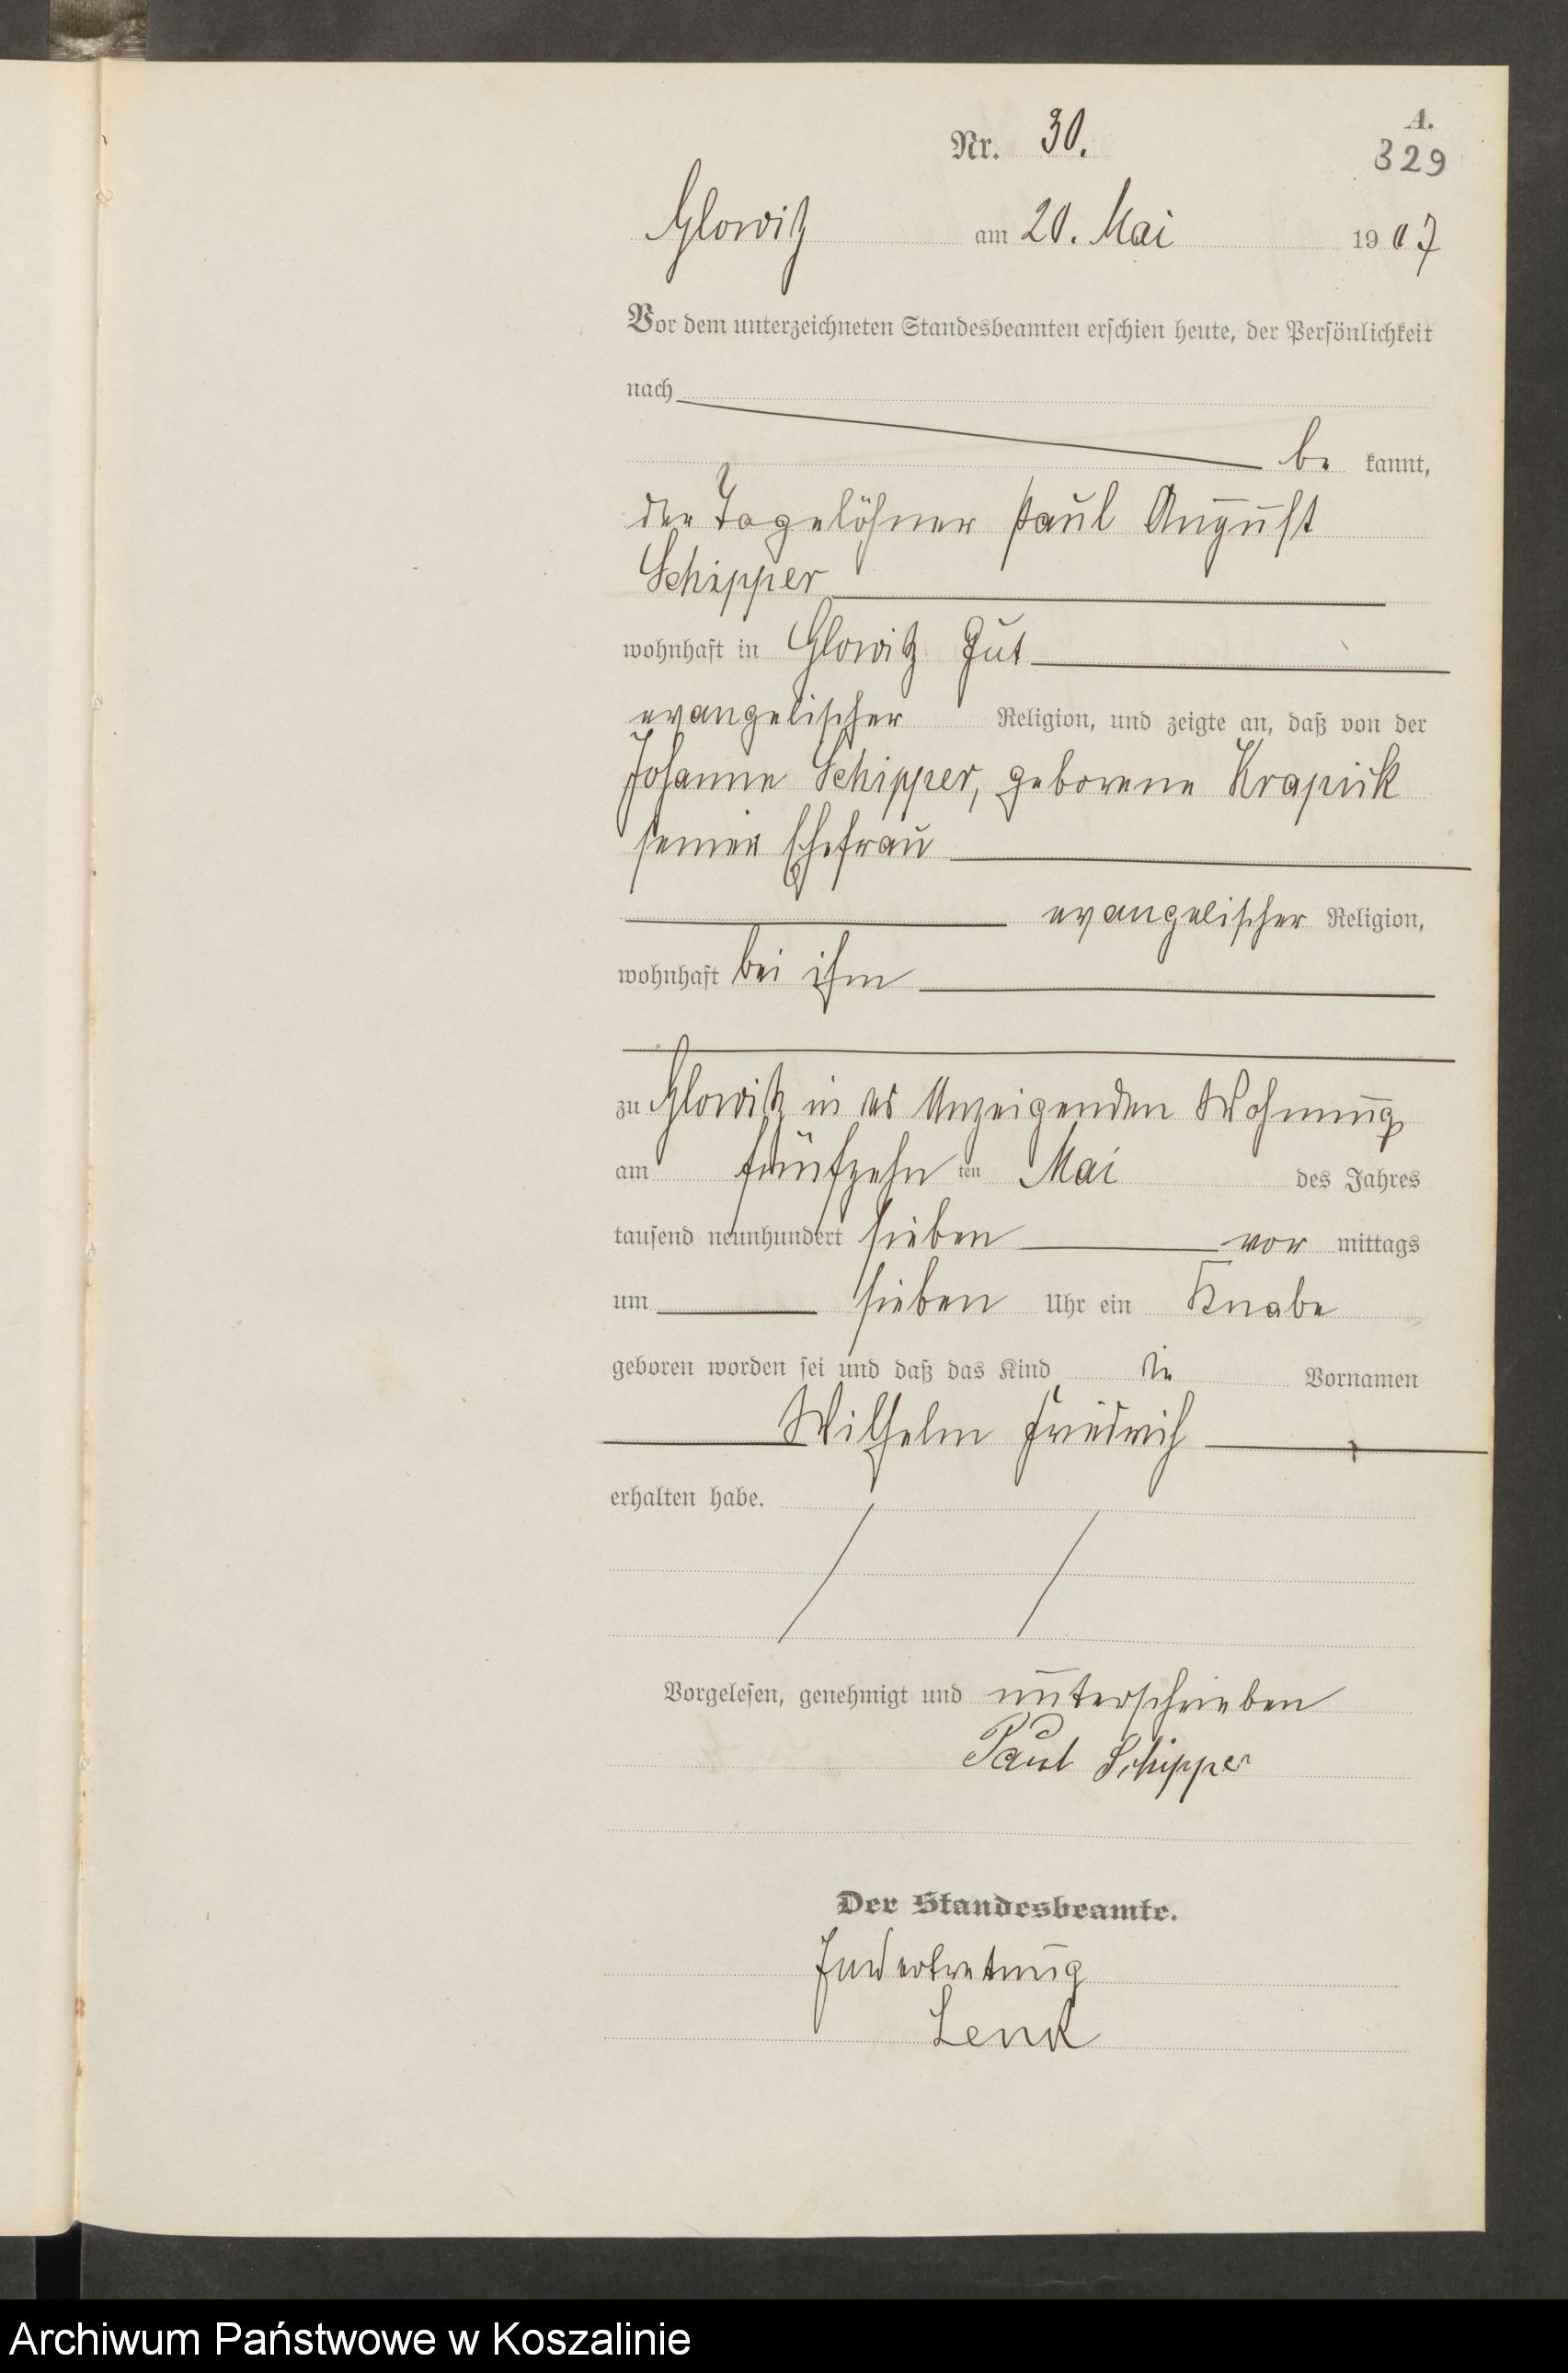 A.
Nr. 30.
329
Glowitz am 20. Mai 1907
Vor dem unterzeichneten Standesbeamten erschien heute, der Persönlichkeit
nach
be kannt,
der Tagelöhner Paul August
Schipper
wohnhaft in Glowitz Gut
evangelischer Religion, und zeigte an, daß von der
Johanne Schipper, geborene Krapuk
seiner Ehefrau
evangelischer Religion,
wohnhaft bei ihm
zu Glowitz in des Anzeigenden Wohnung
am fünfzehn ten Mai des Jahres
tausend neunhundert sieben vor mittags
um sieben Uhr ein Knabe
geboren worden sei und daß das Kind die Vornamen
Wilhelm Friedrich
erhalten habe.
Vorgelesen, genehmigt und unterschrieben
Paul Schipper
Der Standesbeamte.
In Vertretung
Lenk
Archiwum Państwowe w Koszalinie